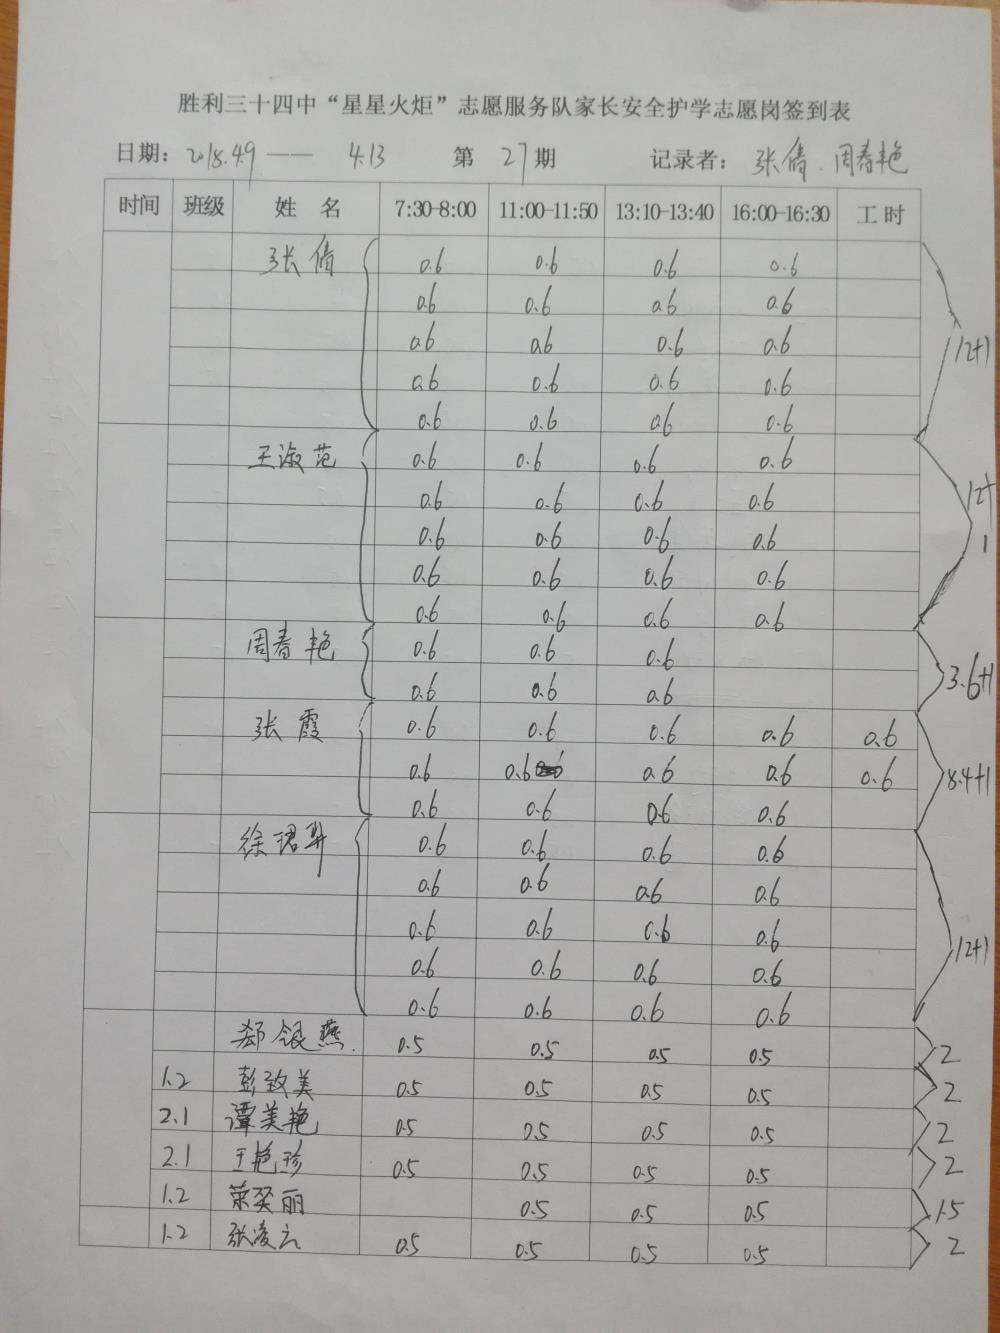 胜利三十四中“星星火炬”志愿服务队家长安全护学志愿岗签到表
日期: 2018.4.9 —— 4.13 第 27 期 记录者: 张倩.周春艳
时间 班级 姓 名 7:30-8:00 11:00-11:50 13:10-13:40 16:00-16:30 工时
张倩 0.6 0.6 0.6 0.6
0.6 0.6 0.6 0.6
0.6 0.6 0.6 0.6 12+1
0.6 0.6 0.6 0.6
0.6 0.6 0.6 0.6
王淑范 0.6 0.6 0.6 0.6
0.6 0.6 0.6 0.6 12+
0.6 0.6 0.6 0.6 1
0.6 0.6 0.6 0.6
0.6 0.6 0.6 0.6
周春艳 0.6 0.6 0.6
0.6 0.6 0.6 3.6+1
张霞 0.6 0.6 0.6 0.6 0.6
0.6 0.6 0.6 0.6 0.6 8.4+1
0.6 0.6 0.6 0.6
徐珺 0.6 0.6 0.6 0.6
0.6 0.6 0.6 0.6
0.6 0.6 0.6 0.6
0.6 0.6 0.6 0.6 12+1
0.6 0.6 0.6 0.6
郄银燕. 0.5 0.5 0.5 0.5 2
1.2 彭致美 0.5 0.5 0.5 0.5 2
2.1 谭美艳 0.5 0.5 0.5 0.5 2
2.1 王艳珍 0.5 0.5 0.5 0.5 2
1.2 丽 0.5 0.5 0.5 1.5
1.2 张凌云 0.5 0.5 0.5 0.5 2